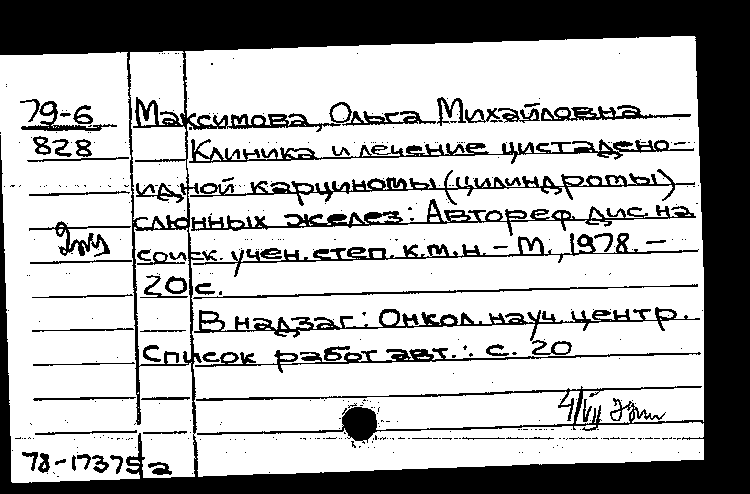 79-6 Максимова, Ольга Михайловна
828 Клиника и лечение цистадено-
идной карциномы (цилиндромы)
слюнных желез: Автореф. дис. на
соиск. учен. степ. к.м.н. - М., 1978. -
20 с.
В надзаг.: Онкол. науч. центр.
Список работ авт.: с. 20
4/VII
78-17375а